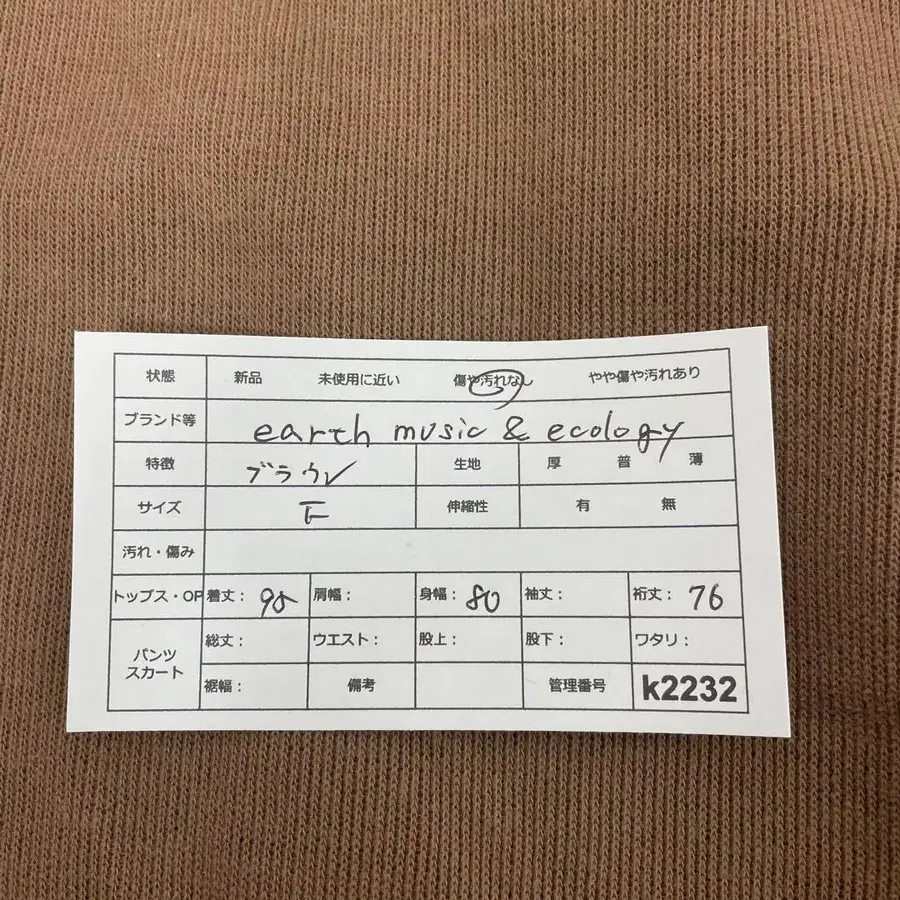 状態 新品 未使用に近い 傷や汚れなし やや傷や汚れあり
ブランド等 earth music & ecology
特徴 ブラウン 生地 厚 普 薄
サイズ F 伸縮性 有 無
汚れ・傷み
トップス・OP 着丈： 95 肩幅： 身幅： 80 袖丈： 裄丈： 76
パンツ スカート 総丈： ウエスト： 股上： 股下： ワタリ：
裾幅： 備考 管理番号 k2232